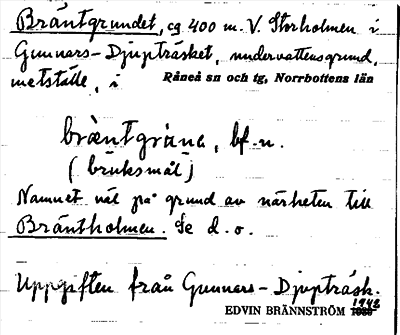 Bräntgrundet, c:a 400 m. V. Storholmen i
Gunnars-Djupträsket, undervattensgrund,
metställe, i Råneå sn och tg, Norrbottens län
bräntgrùnə, bf. n.
(bruksmål)
Namnet väl på grund av närheten till
Bräntholmen. Se d. o.
Uppgiften från Gunnars-Djupträsk.
1942
EDVIN BRÄNNSTRÖM